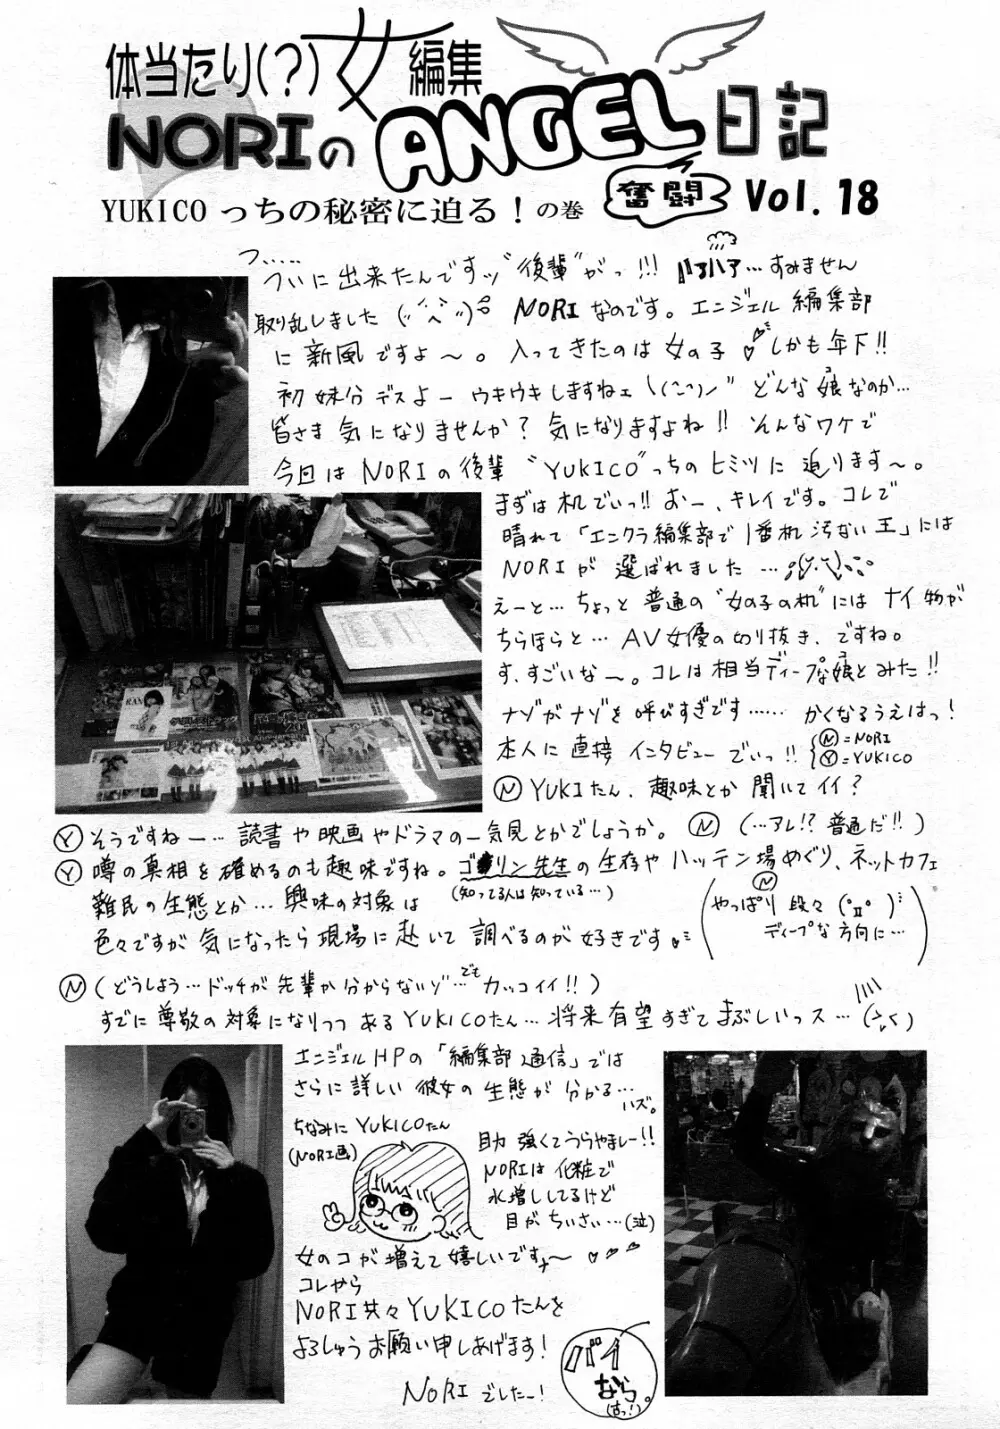 体当たり(?)女編集
NORIのANGEL日記
奮闘
Vol. 18
YUKICOっちの秘密に迫る!の巻
フ……
ついに出来たんですッ"後輩"がっ!!! ハァハァ…すみません
取り乱しました NORIなのです。エンジェル編集部
に新風ですよ〜。入ってきたのは女の子 しかも年下!!
初妹分デスよー ウキウキしますねェ どんな娘なのか…
皆さま気になりませんか?気になりますよね!!そんなワケで
今回はNORIの後輩"YUKICO"っちのヒミツに迫ります〜。
まずは机でいっ!!おー、キレイです。コレで
晴れて「エンクラ編集部で1番机汚ない王」には
NORIが選ばれました…
えーと…ちょっと普通の"女の子の机"にはナイ物が
ちらほらと…AV女優の切り抜き、ですね。
す、すごいな〜。コレは相当ディープな娘とみた!!
ナゾがナゾを呼びすぎです……かくなるうえはっ!
本人に直接インタビューでいっ!!
Ⓝ=NORI
Ⓨ=YUKICO
Ⓝ YUKIたん、趣味とか聞いてイイ?
Ⓨ そうですねー…読書や映画やドラマの一気見とかでしょうか。 Ⓝ (…アレ!?普通だ!!)
Ⓨ 噂の真相を確めるのも趣味ですね。ゴ●リン先生の生存やハッテン場めぐり、ネットカフェ
(知ってる人は知っている…)
難民の生態とか…興味の対象は
色々ですが気になったら現場に赴いて調べるのが好きです
Ⓝ
やっぱり段々
ディープな方向に…
Ⓝ (どうしよう…ドッチが先輩か分からないゾ…でもカッコイイ!!)
すでに尊敬の対象になりつつあるYUKICOたん…将来有望すぎてまぶしいっス…
エンジェルHPの「編集部通信」では
さらに詳しい彼女の生態が分かる…
ハズ。
ちなみにYUKICOたん
(NORI画)
目力強くてうらやましー!!
NORIは化粧で
水増ししてるけど
目がちいさい…(泣)
女のコが増えて嬉しいです〜
コレから
NORI共々YUKICOたんを
よろしゅうお願い申しあげます!
NORIでしたー!
バイ
なら。
(はっ!)